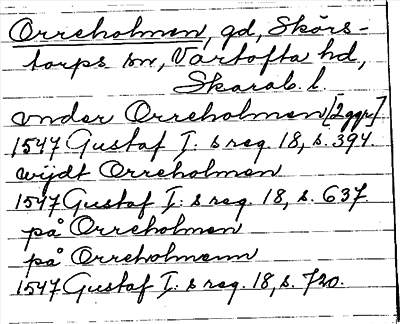 Orreholmen, gd, Skörs-
torps sn, Vartofta hd,
Skarab. l.
vnder Orreholmen [2 ggr]
1547 Gustaf I: s reg. 18, s. 394
wijdt Orreholmen
1547 Gustaf I: s reg. 18, s. 637.
på Orreholmen
på Orreholmenn
1547 Gustaf I: s reg. 18, s. 720.